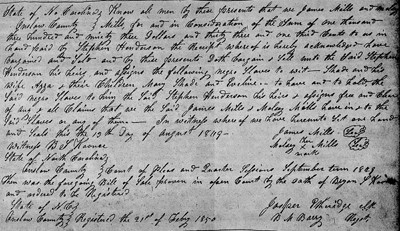 State of No Carolina, Know all men by these presents that we James Mills and Malsey
Onslow County } Mills, for and in Consideration of the Sum of one thousand
three hundred and ninety three Dollars and thirty three and one third Cents to us in
hand paid by Stephen Henderson the Receipt whereof is hereby acknowledged have
Bargained and Sold and by these presents doth Bargain & Sell unto the Said Stephen
Henderson his heirs and assigns the following negro Slaves to wit Shade and his
Wife and their Children, Mary Shade and Eveline. To have and to hold the
Said Negro Slaves to him the Said Stephen Henderson his heirs & assigns free and Clear
of all Claims that we the Said James Mills & Malsy Mills have in or to the
Said Slaves or any of them — In witness whereof we have hereunto Set our hand
and Seals this the 17th Day of August 1849 James Mills (Seal)
Witness B S Koonce Malsey her Mills (Seal)
State of North Carolina mark
Onslow County } Court of Pleas and Quarter Sessions September term 1849
Then was the foregoing Bill of Sale proven in open Court by the oath of Bryan S Koonce
and ordered to be Registered Jasper Etheridge clk
State of N C
Onslow County } Registered the 21st of Feby 1850 B M Barry Regst